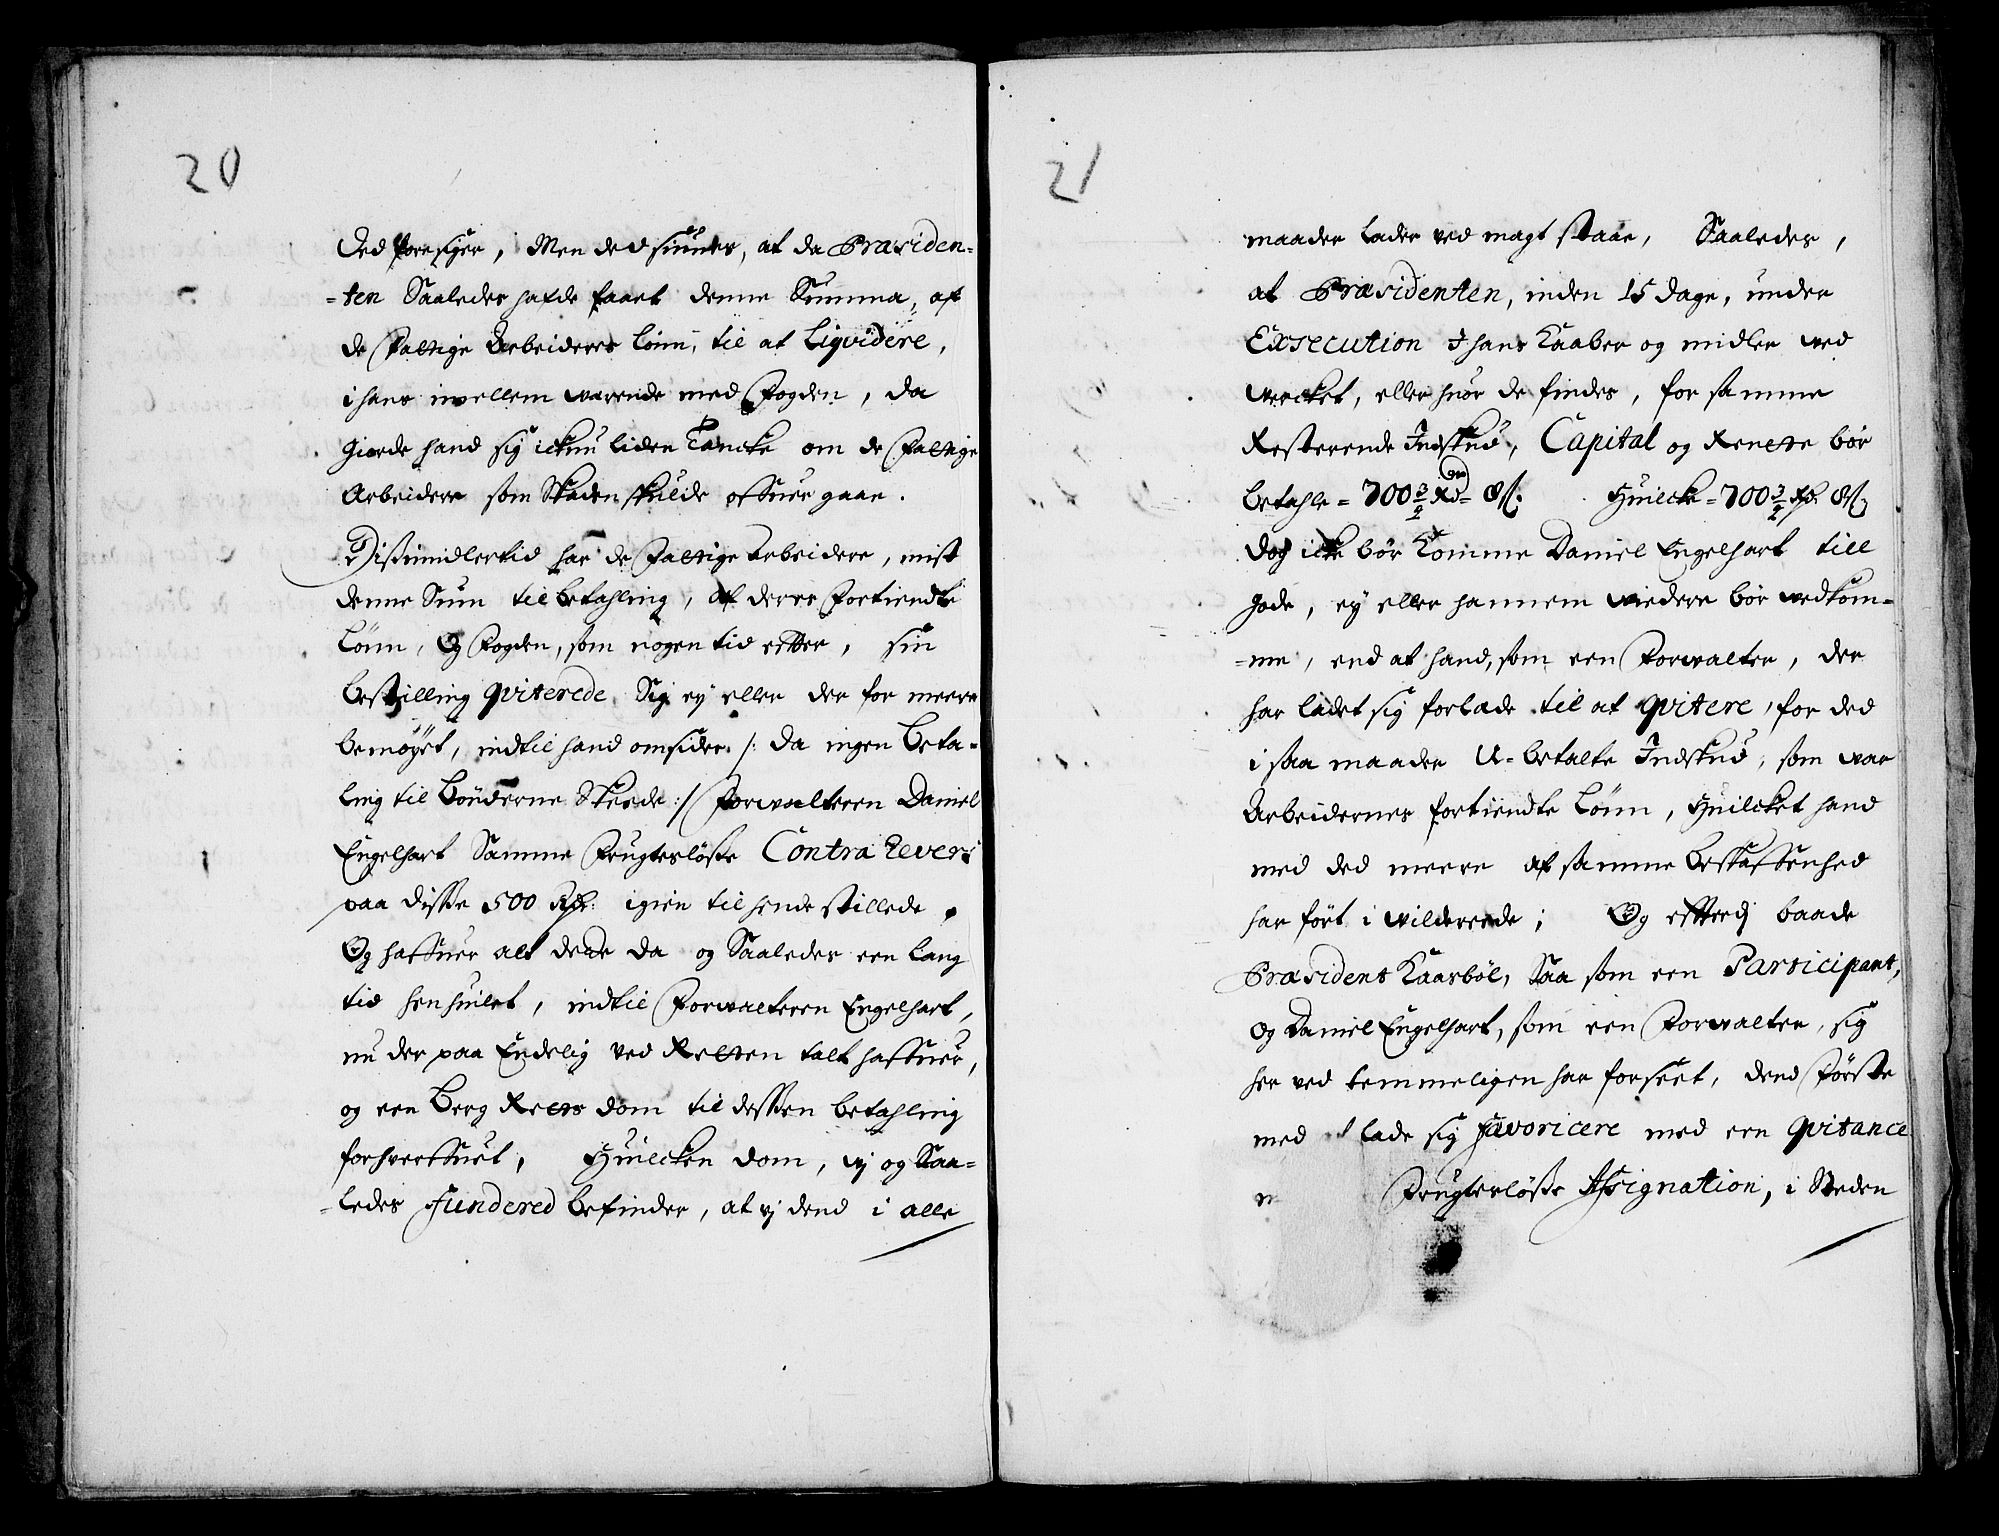 20
Ded foresiger, Men ded siunes, at da Præsiden-
-ten Saaledes hafde faaet denne Summa, af
de fattige Arbeideres Lönn, til at Liqvidere,
i hans imellem værende med Fogden, da
giorde hand sig ickun liden Tancke om de fattige
Arbeidere som Skaden skulde ofver gaae.
Dissimidlertid har de fattige Arbeidere, mist
denne Sum til betahling, af deres fortiendte
Lönn, Og Fogden, som nogen tid effter, sin
bestilling qviterede Sig ey eller der for meere
bemöyet, indtil hand omsider /: da ingen Beta-
ling til Bönderne Skeede :/ Forvalteren Daniel
Engelhart Samme Frugteslösse Contra Revers
paa disse 500 Rdr: igien tilhende stillede,
Og hafver alt dette da og Saaledes een lang
tid henhvilet, indtil Forvalteren Engelhart,
nu der paa Endelig ved Retten talt hafver,
og een Berg Retts dom til dessen betahling
forhvervet, Huilcken dom, vj og Saa-
-ledes Funderet befinder, at vj dend i alle
21
maader lader ved magt staae, Saaledes,
at Præsidenten, inden 15 dage, under
Exsecution I hans Kaaber og midler ved
Vercket, eller huor de findes, for samme
Resterende Indskud, Capital og Renette bör
betahle = 700 3/2 Rd=
Huilcke = 700 3/2 Rdr
dog icke bör komme Daniel Engelhart till
gode, ey eller hannem viedere bör vedkom-
-me, end at hand, som een Forvalter, der
har ladet sig forlæde til at qvitere, for ded
i saa maader U-betalte Indskud, som var
Arbeidernes fortiendte Lönn, Huilcket hand
med ded meere af samme beskaffenhed
har fört i vilderrede; Og efftterdj baade
Præsident Kaarböl, Saa som een Participant,
Og Daniel Engelhart, som een Forvalter, sig
her ved temmeligen har forseet, dend förste
med lade sig favoricere med een qvitance
Frugteslösse Assignation, i Steden